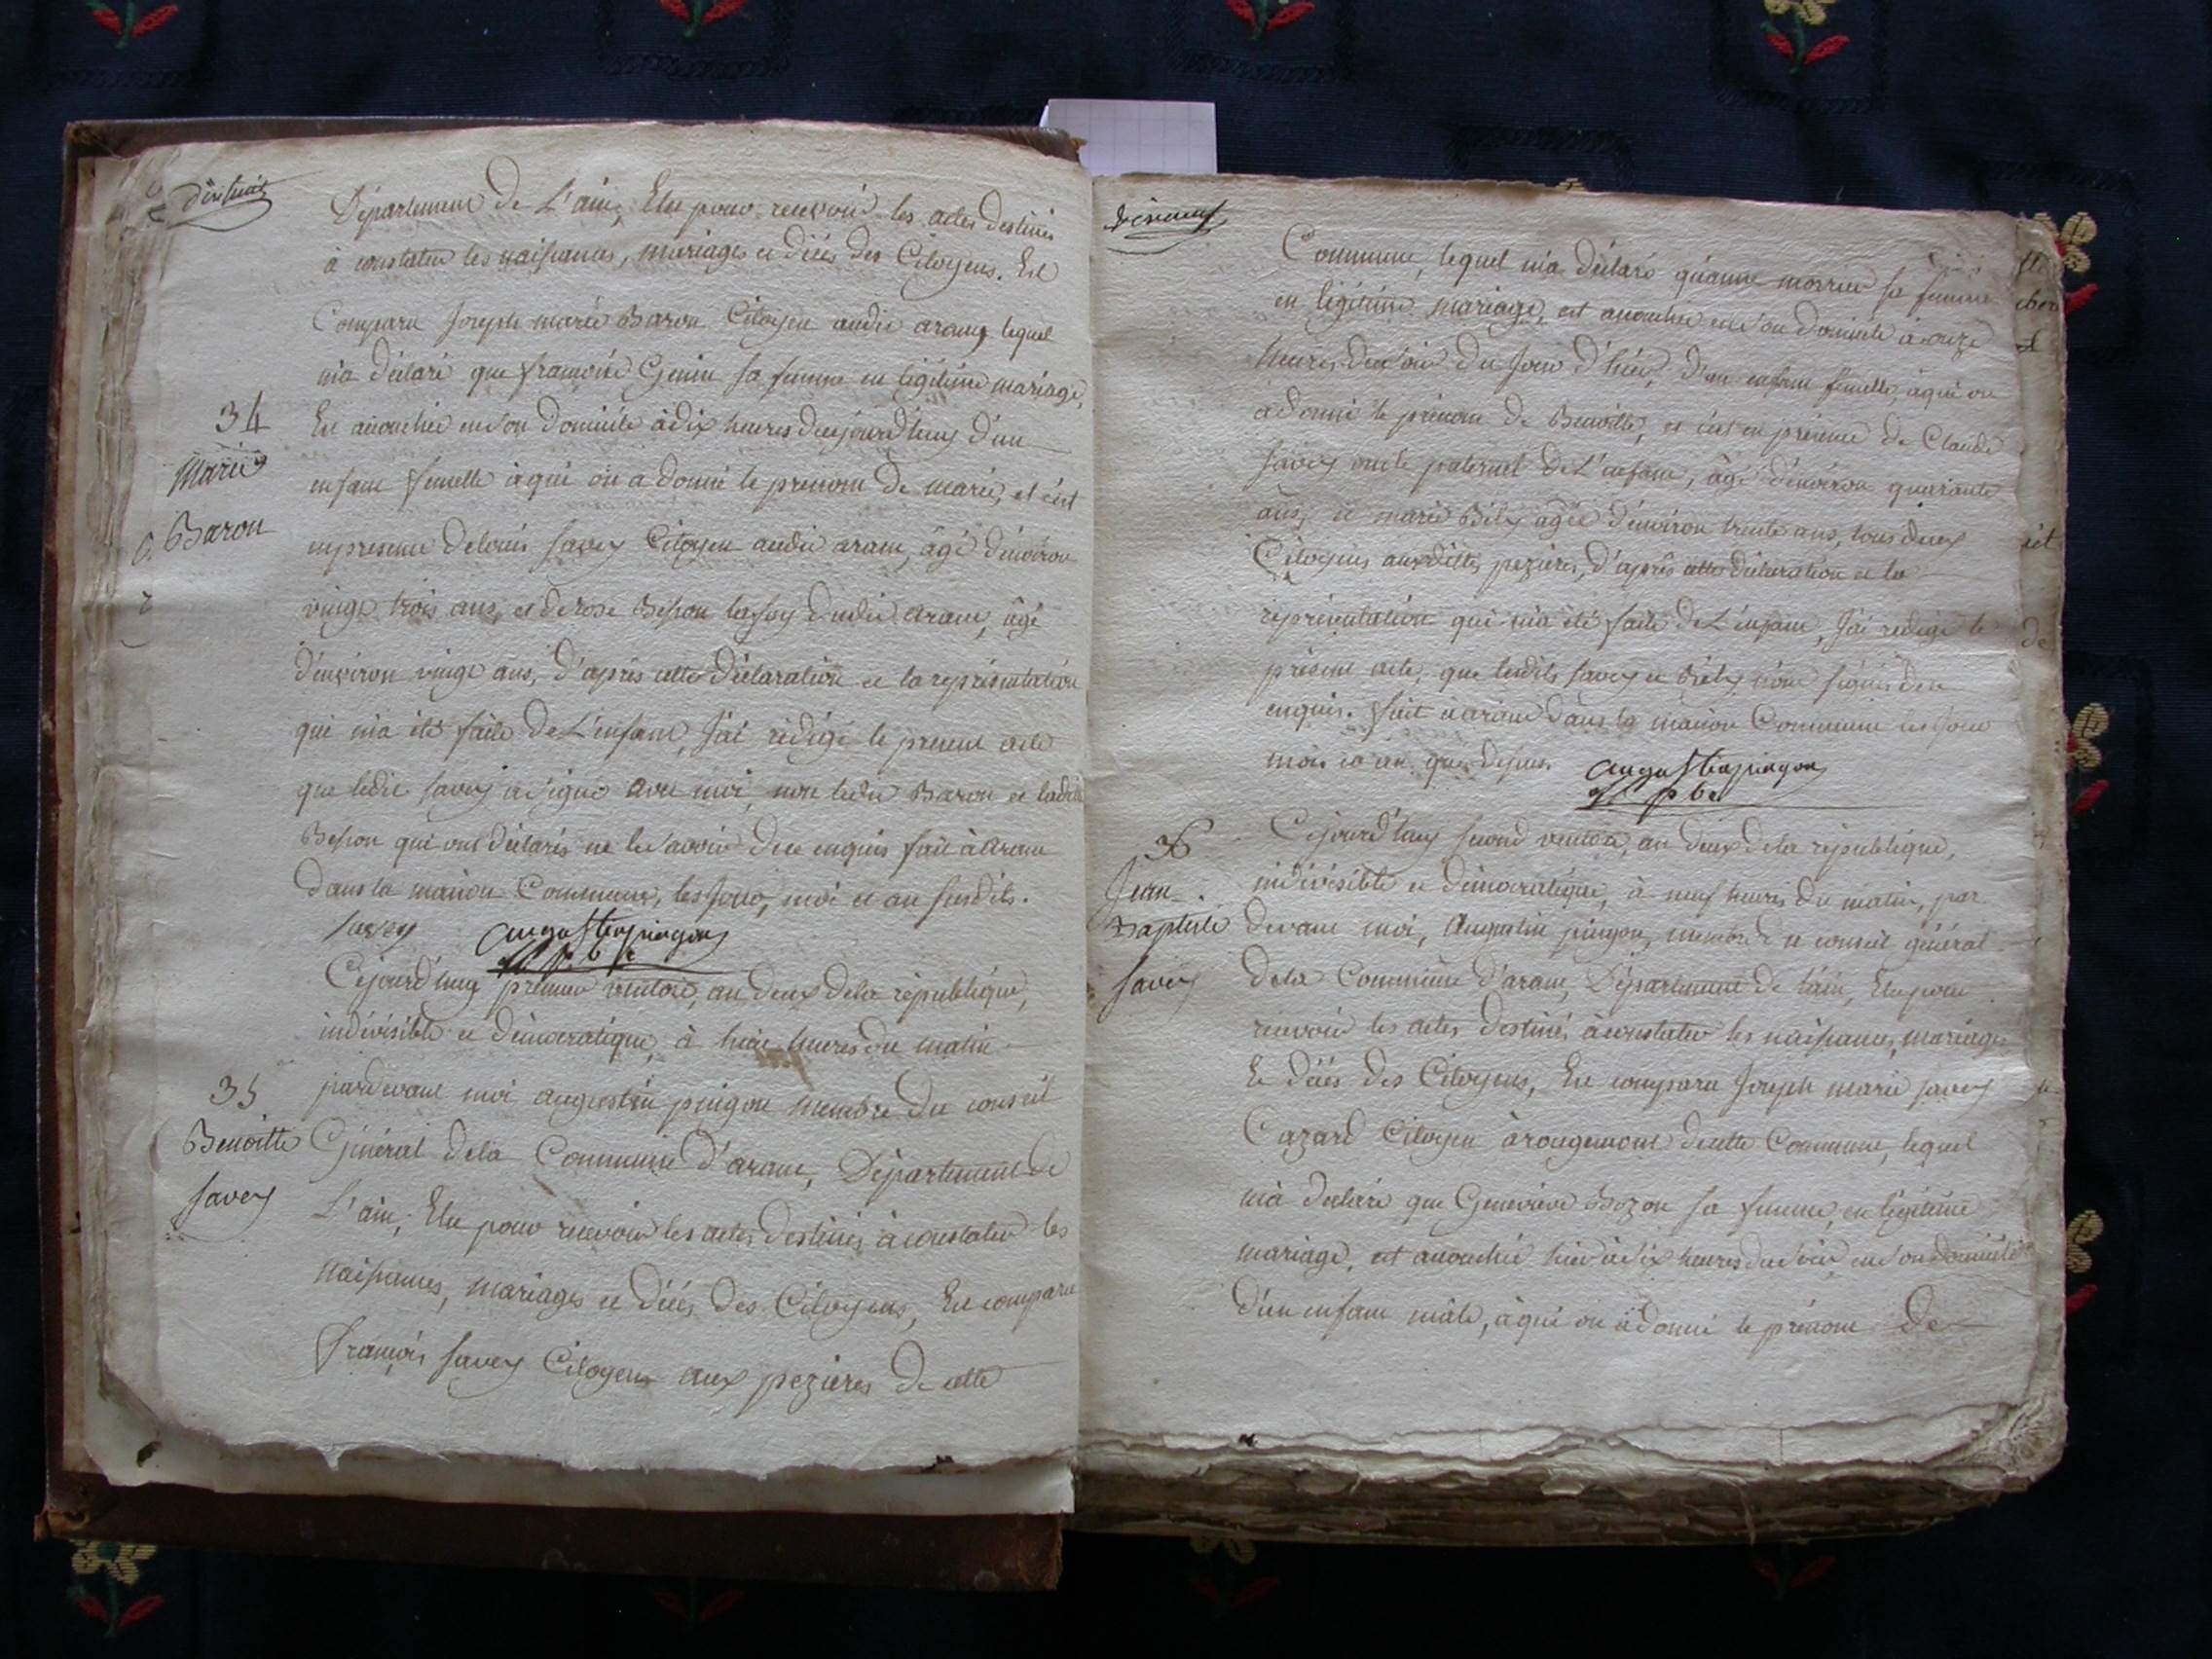 dixhuit
Département de L'ain, Elu pour recevoir les actes destinés
à constater les naissances, mariages et décés des Citoyens. Est
Comparu Joseph marie Baron Citoyen audit aranc, lequel
m'a déclaré que francoise Genin sa femme en légitime mariage,
34
Est accouchée en son Domicile à dix heures du jourd'huy d'un
Marie
enfant femelle à qui on a donné le prenom de marie, et c'est
Baron
en presence de louis savey Citoyen audit aranc, âgé d'environ
vingt trois ans, et de rose Besson dudit aranc, âgé
d'environ vingt ans, d'après cette Déclaration et la représentation
qui m'a été faite de L'enfant, j'ai rédigé le present acte
que ledit savey a signé avec moi, non ledit Baron et ladite
Besson qui ont déclarés ne le savoir de ce enquis fait à Aranc
dans la maison Commune, les jour, moi et an susdits.
savey augustin pingon
Cejourd'huy premier ventose, an deux de la république,
indivisible et démocratique, à huit heures du matin
35
pardevant moi augustin pingon membre du conseil
Benoitte
Général de la Commune d'aranc, Département de
savey
L'ain, Elu pour recevoir les actes destinés à constater les
naissances, mariages et décés des Citoyens, Est comparu
francois savey Citoyen aux pezieres de cette
dixneuf
Commune, lequel m'a déclaré qu'anne morrier sa femme
en légitime mariage, est accouchée en son domicile à onze
heures du soir du jour d'hier, d'un enfant femelle, à qui on
a donné le prénom de Benoitte, et c'est en présence de Claude
savey oncle paternel de L'enfant, âgé d'environ quarante
ans, et marie Bély âgée d'environ trente ans, tous deux
Citoyens auxdittes pezieres, d'après cette déclaration et la
représentation qui m'a été faite de L'enfant, j'ai redigé le
présent acte, que lesdits savey et Bély n'ont signés de ce
enquis. fait à aranc dans la maison Commune les jour
mois et an que dessus. augustin pingon
Cejourd'huy second ventose, an deux de la république,
36
Jean
indivisible et démocratique, à neuf heures du matin, par
Baptiste
devant moi, Augustin pingon, membre du conseil général
savey
de la Commune d'aranc, Département de l'ain, Elu pour
recevoir les actes destinés à constater les naissances, mariages
Et décés des Citoyens, Est comparu Joseph marie savey
Cazard Citoyen à rougemont de cette Commune, lequel
m'a déclaré que Geneviève Bozon sa femme, en légitime
mariage, est accouchée hier à dix heures du soir en son domicile
d'un enfant mâle, à qui on a donné le prénom de